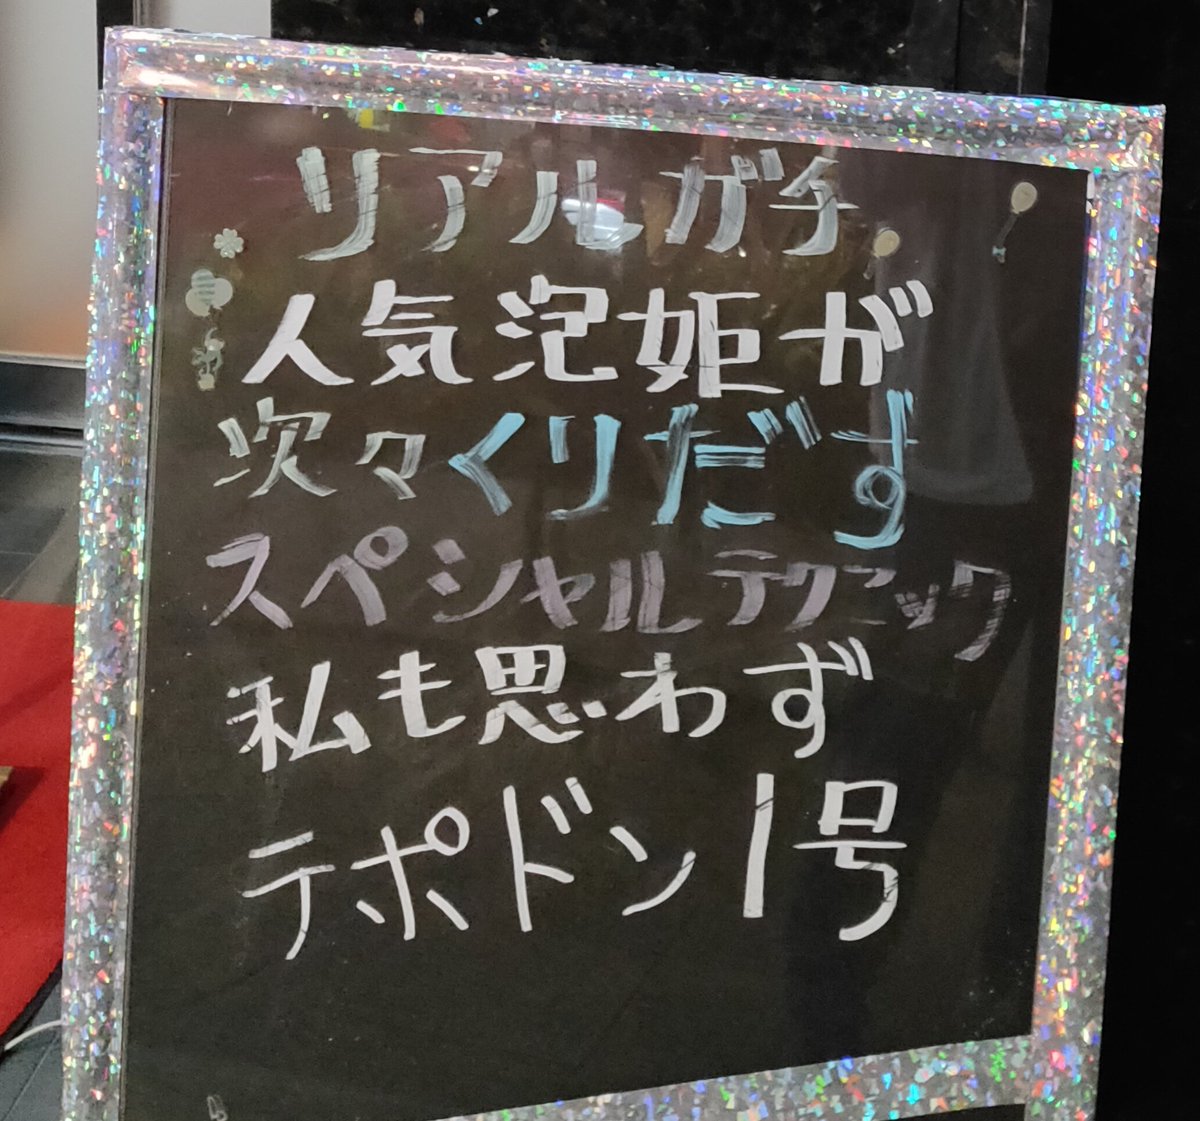 リアルガチ
人気泡姫が
次々くりだす
スペシャルテクニック
私も思わず
テポドン1号